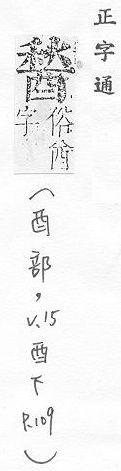 正字通
俗
字
(酉部, V.15 酉下 P.109)